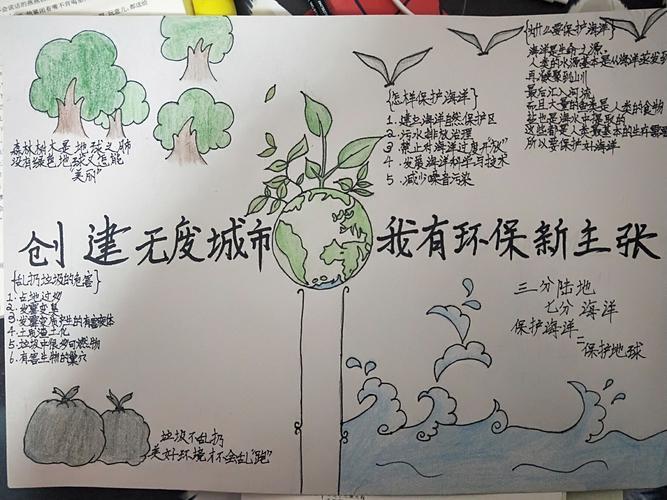 森林树木是地球之肺
没有绿色地球又怎能
"美丽"
{怎样保护海洋}
1. 建立海洋自然保护区
2. 污水排放治理
3. 禁止对海洋过度开放
4. 发展海洋科学与技术
5. 减少噪音污染
{为什么要保护海洋}
海洋是生命之源。
人类的水源基本是从海洋蒸发
最后汇入河流
而且大量的鱼类是人类的食物
盐也是海水中提取的
这些都是人类最基本的生存需要
所以要保护好海洋
创建无废城市
我有环保新主张
{乱扔垃圾的危害}
1. 占地过多
2. 发霉变臭
4. 土质渣土化
5. 垃圾中很多可燃物
6. 有害生物的巢穴
三分陆地
七分海洋
保护海洋
=保护地球
垃圾不乱扔
美好环境才会乱"跑"